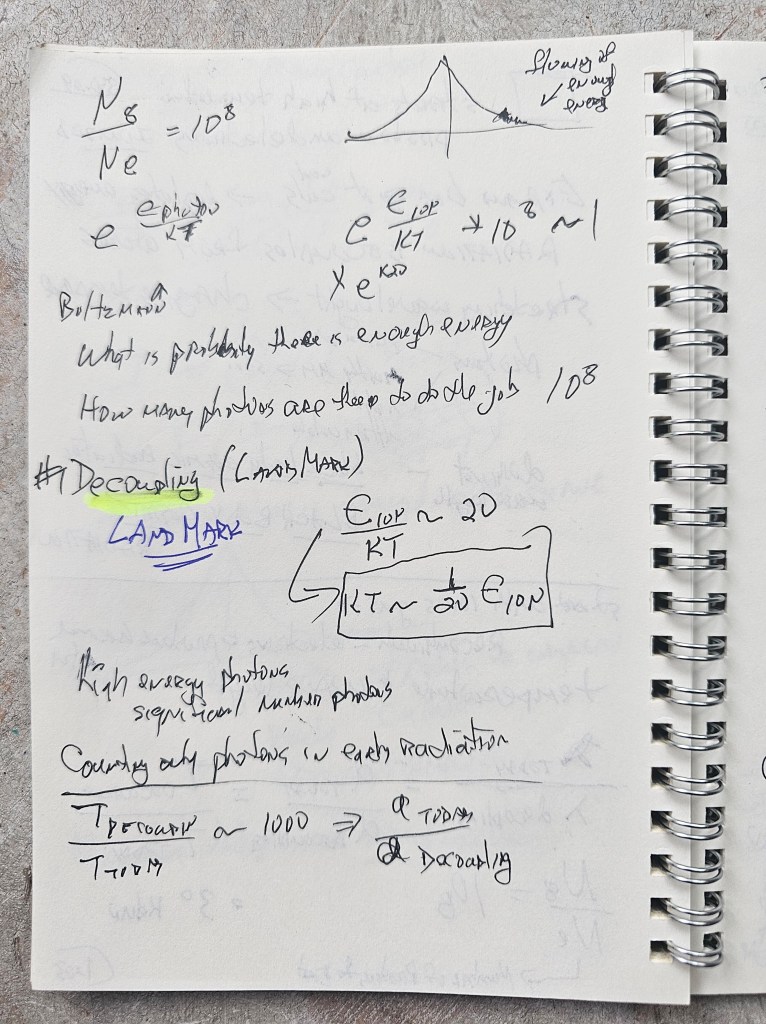 N8 / Ne = 10^8
of enough energy
e^(ephoton/KT)
e^(EION/KT) → 10^8 ~ 1
x e
Boltzmann
What is probability there is enough energy
How many photons are there to do the job 10^8
#1 Decoupling (LandsMark)
LANDMARK
EION/KT ~ 20
KT ~ 1/20 EION
High energy photons
significant number photons
Counting only photons in early radiation
TDECOUPLN / TTODAY ~ 1000 ⇒ aTODAY / aDecoupling